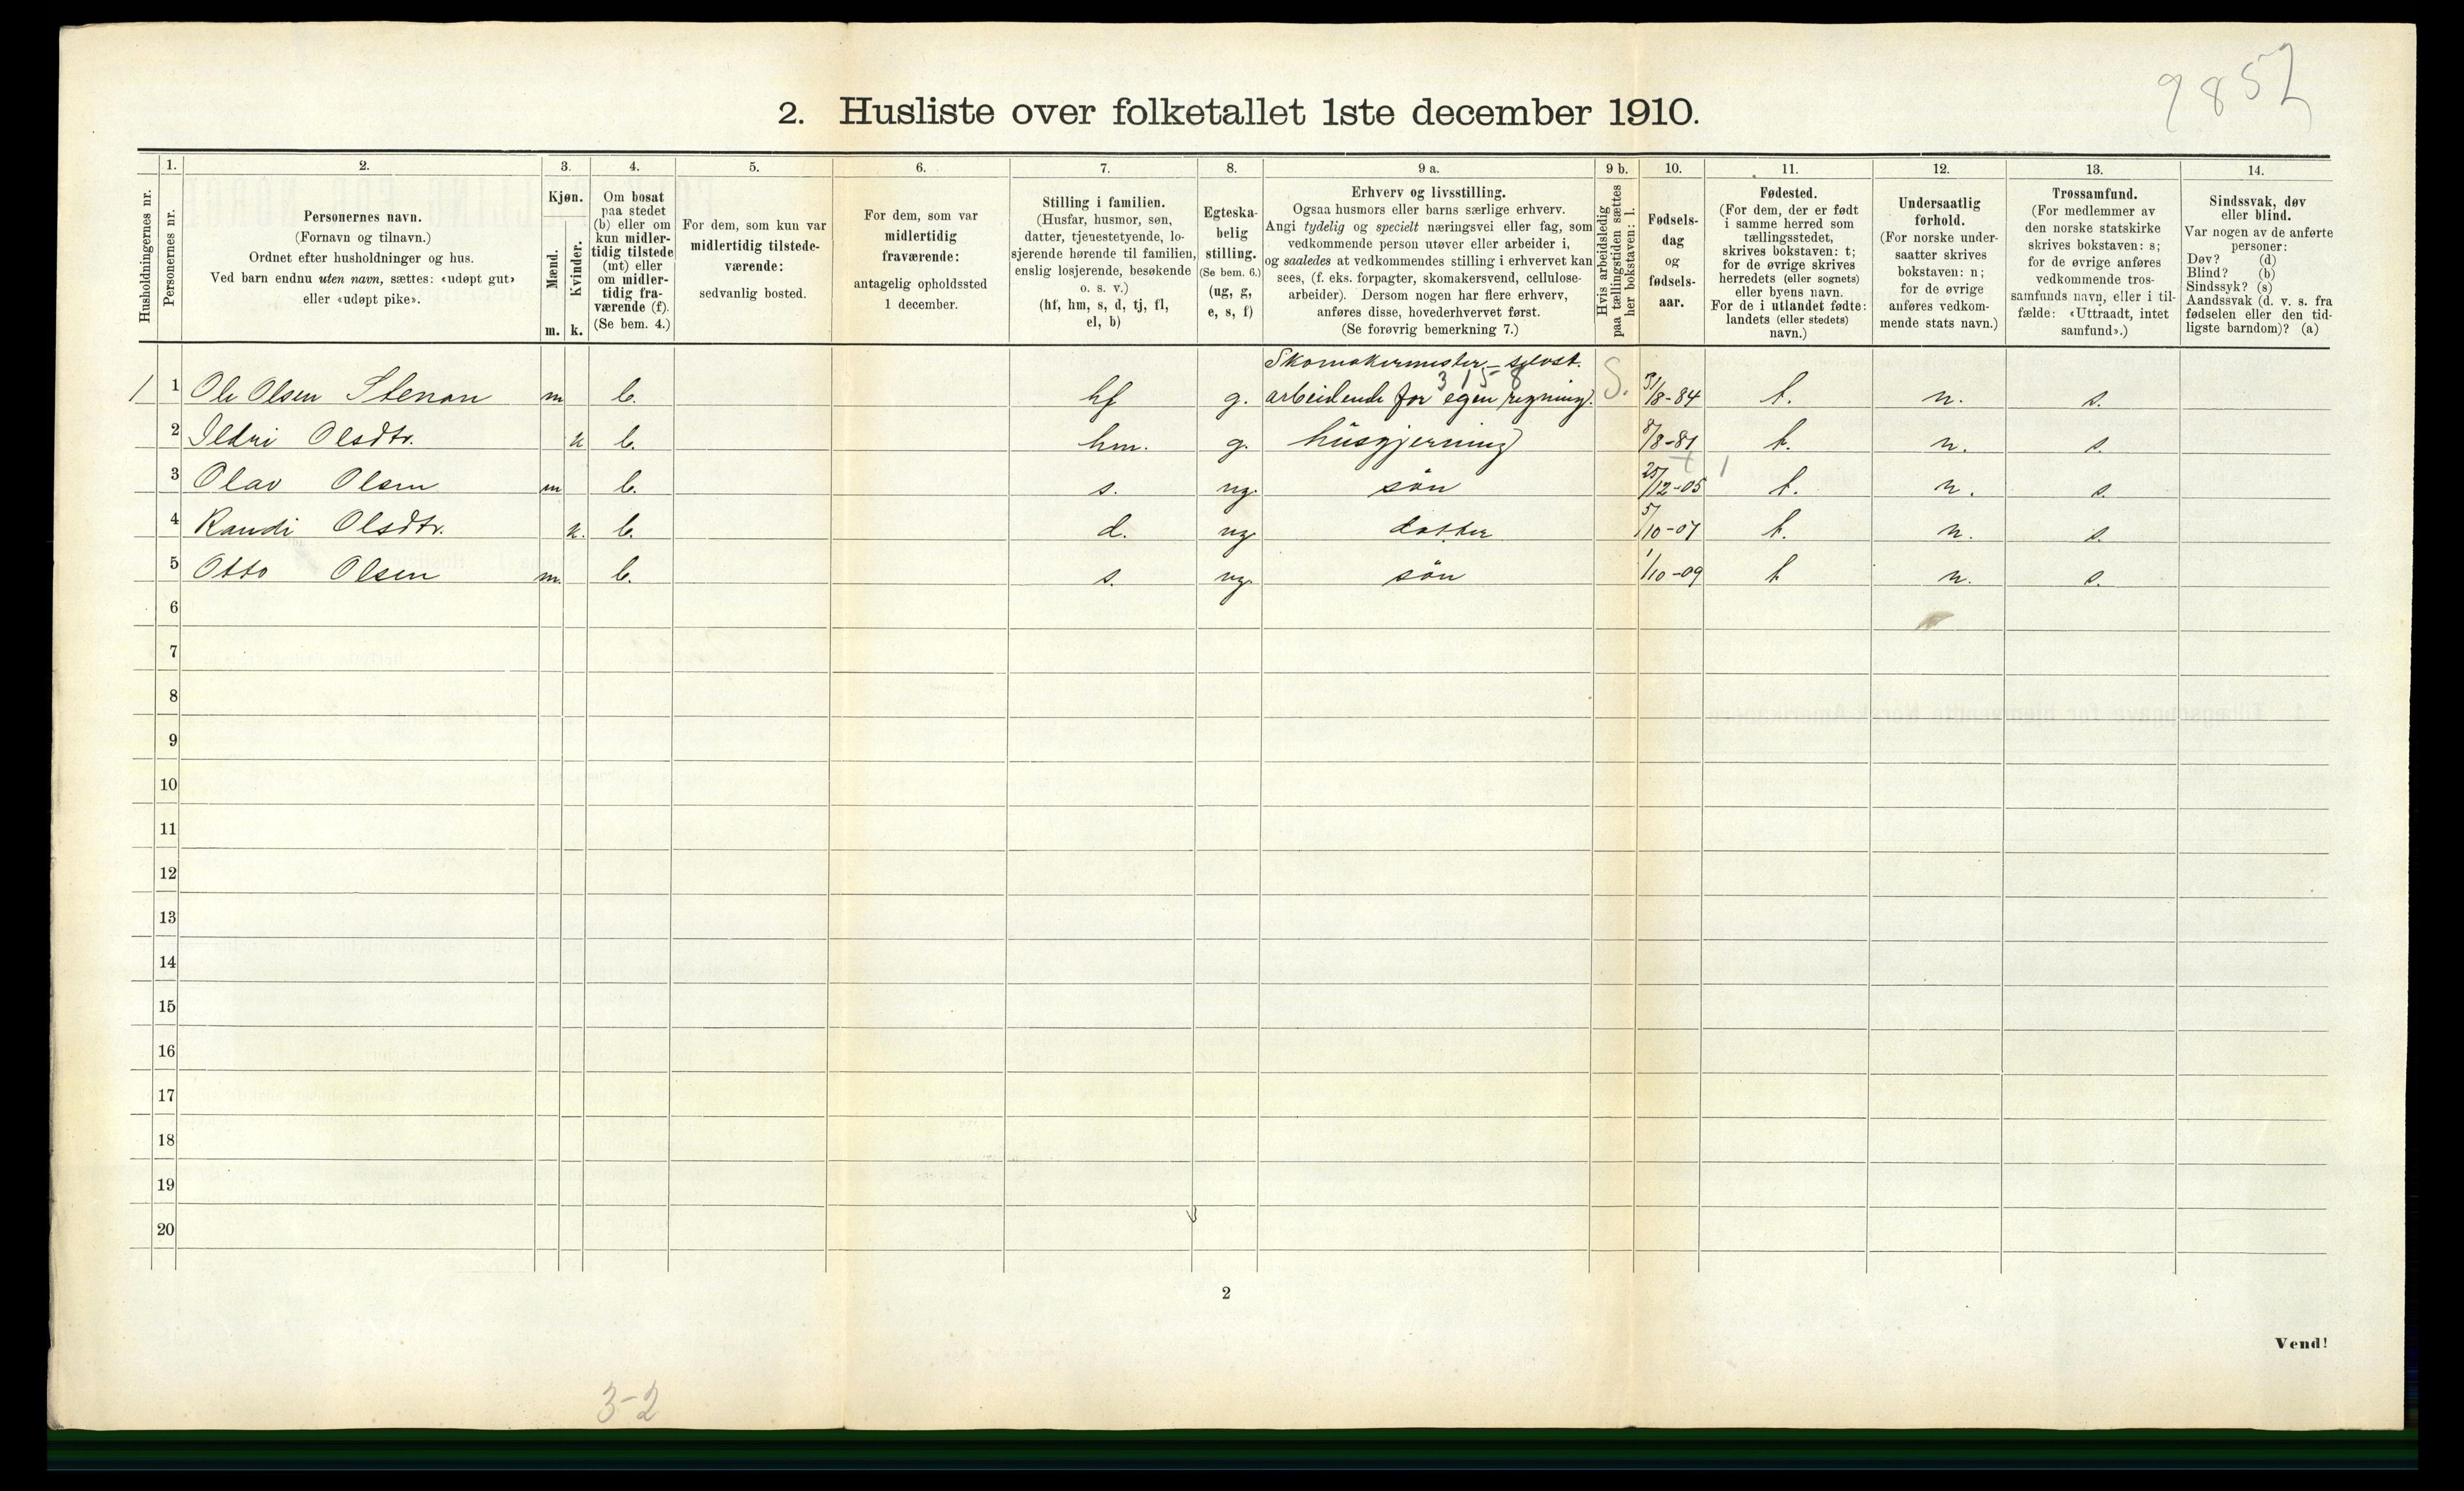 9852
2. Husliste over folketallet 1ste december 1910.
Husholdningernes nr.
1. Personernes nr.
2. Personernes navn.
(Fornavn og tilnavn.)
Ordnet efter husholdninger og hus.
Ved barn endnu uten navn, sættes: «udøpt gut»
eller «udøpt pike».
3. Kjøn.
Mænd. m.
Kvinder. k.
4. Om bosat
paa stedet
(b) eller om
kun midler-
tidig tilstede
(mt) eller
om midler-
tidig fra-
værende (f).
(Se bem. 4.)
5. For dem, som kun var
midlertidig tilstede-
værende:
sedvanlig bosted.
6. For dem, som var
midlertidig
fraværende:
antagelig opholdssted
1 december.
7. Stilling i familien.
(Husfar, husmor, søn,
datter, tjenestetyende, lo-
sjerende hørende til familien,
enslig losjerende, besøkende
o. s. v.)
(hf, hm, s, d, tj, fl,
el, b)
8. Egteska-
belig
stilling.
(Se bem. 6.)
(ug, g,
e, s, f)
9 a. Erhverv og livsstilling.
Ogsaa husmors eller barns særlige erhverv.
Angi tydelig og specielt næringsvei eller fag, som
vedkommende person utøver eller arbeider i,
og saaledes at vedkommendes stilling i erhvervet kan
sees, (f. eks. forpagter, skomakersvend, cellulose-
arbeider). Dersom nogen har flere erhverv,
anføres disse, hovederhvervet først.
(Se forøvrig bemerkning 7.)
9 b. Hvis arbeidsledig
paa tællingstiden sættes
her bokstaven: l.
10. Fødsels-
dag
og
fødsels-
aar.
11. Fødested.
(For dem, der er født
i samme herred som
tællingsstedet,
skrives bokstaven: t;
for de øvrige skrives
herredets (eller sognets)
eller byens navn.
For de i utlandet fødte:
landets (eller stedets)
navn.)
12. Undersaatlig
forhold.
(For norske under-
saatter skrives
bokstaven: n;
for de øvrige
anføres vedkom-
mende stats navn.)
13. Trossamfund.
(For medlemmer av
den norske statskirke
skrives bokstaven: s;
for de øvrige anføres
vedkommende tros-
samfunds navn, eller i til-
fælde: «Uttraadt, intet
samfund».)
14. Sindssvak, døv
eller blind.
Var nogen av de anførte
personer:
Døv? (d)
Blind? (b)
Sindssyk? (s)
Aandssvak (d. v. s. fra
fødselen eller den tid-
ligste barndom)? (a)
Skomakermester – selvst.
3 1 5 8
1 1 Ole Olsen Stenan m b. hf g. arbeidende for egen regning. S. 31/8-84 t. n. s.
2 Ildri Olsdtr. k b. hm. g. husgjerning 8/8-81 t. n. s.
3 Olav Olsen m b. s. ug. sön 25/12-05 t. n. s.
4 Randi Olsdtr. k. b. d. ug datter 5/10-07 t. n. s.
5 Otto Olsen m. b. s. ug. sön 1/10-09 t n. s.
6
7
8
9
10
11
12
13
14
15
16
17
18
19
20
2
Vend!
3-2